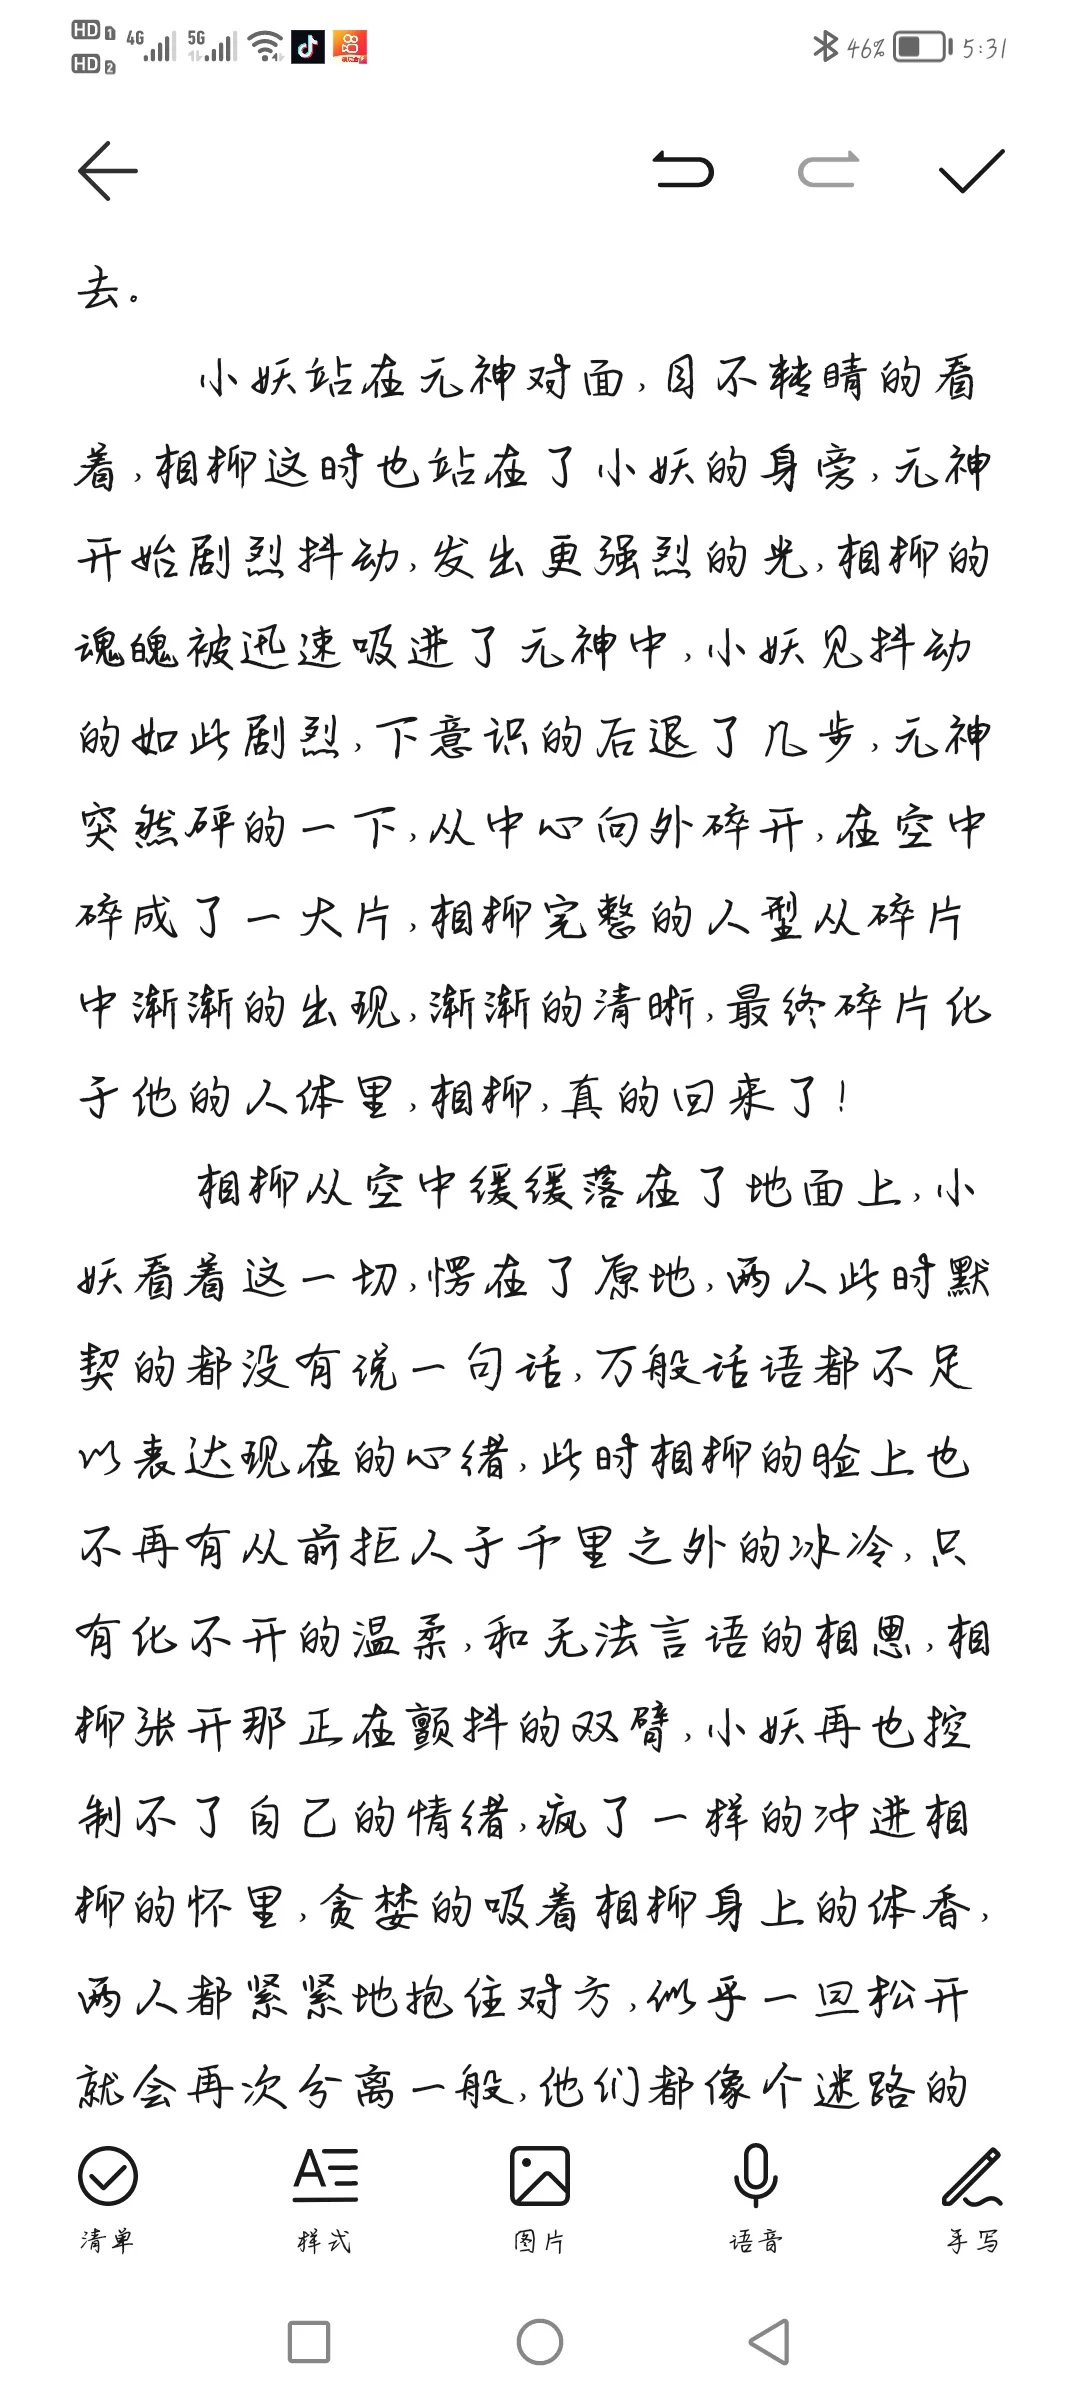 HD 1 4G 5G 46% 5:31
HD 2
去。
小妖站在元神对面,目不转睛的看
着,相柳这时也站在了小妖的身旁,元神
开始剧烈抖动,发出更强烈的光,相柳的
魂魄被迅速吸进了元神中,小妖见抖动
的如此剧烈,下意识的后退了几步,元神
突然砰的一下,从中心向外碎开,在空中
碎成了一大片,相柳完整的人型从碎片
中渐渐的出现,渐渐的清晰,最终碎片化
于他的人体里,相柳,真的回来了!
相柳从空中缓缓落在了地面上,小
妖看着这一切,愣在了原地,两人此时默
契的都没有说一句话,万般话语都不足
以表达现在的心绪,此时相柳的脸上也
不再有从前拒人于千里之外的冰冷,只
有化不开的温柔,和无法言语的相思,相
柳张开那正在颤抖的双臂,小妖再也控
制不了自己的情绪,疯了一样的冲进相
柳的怀里,贪婪的吸着相柳身上的体香,
两人都紧紧地抱住对方,似乎一回松开
就会再次分离一般,他们都像个迷路的
清单 样式 图片 语音 手写